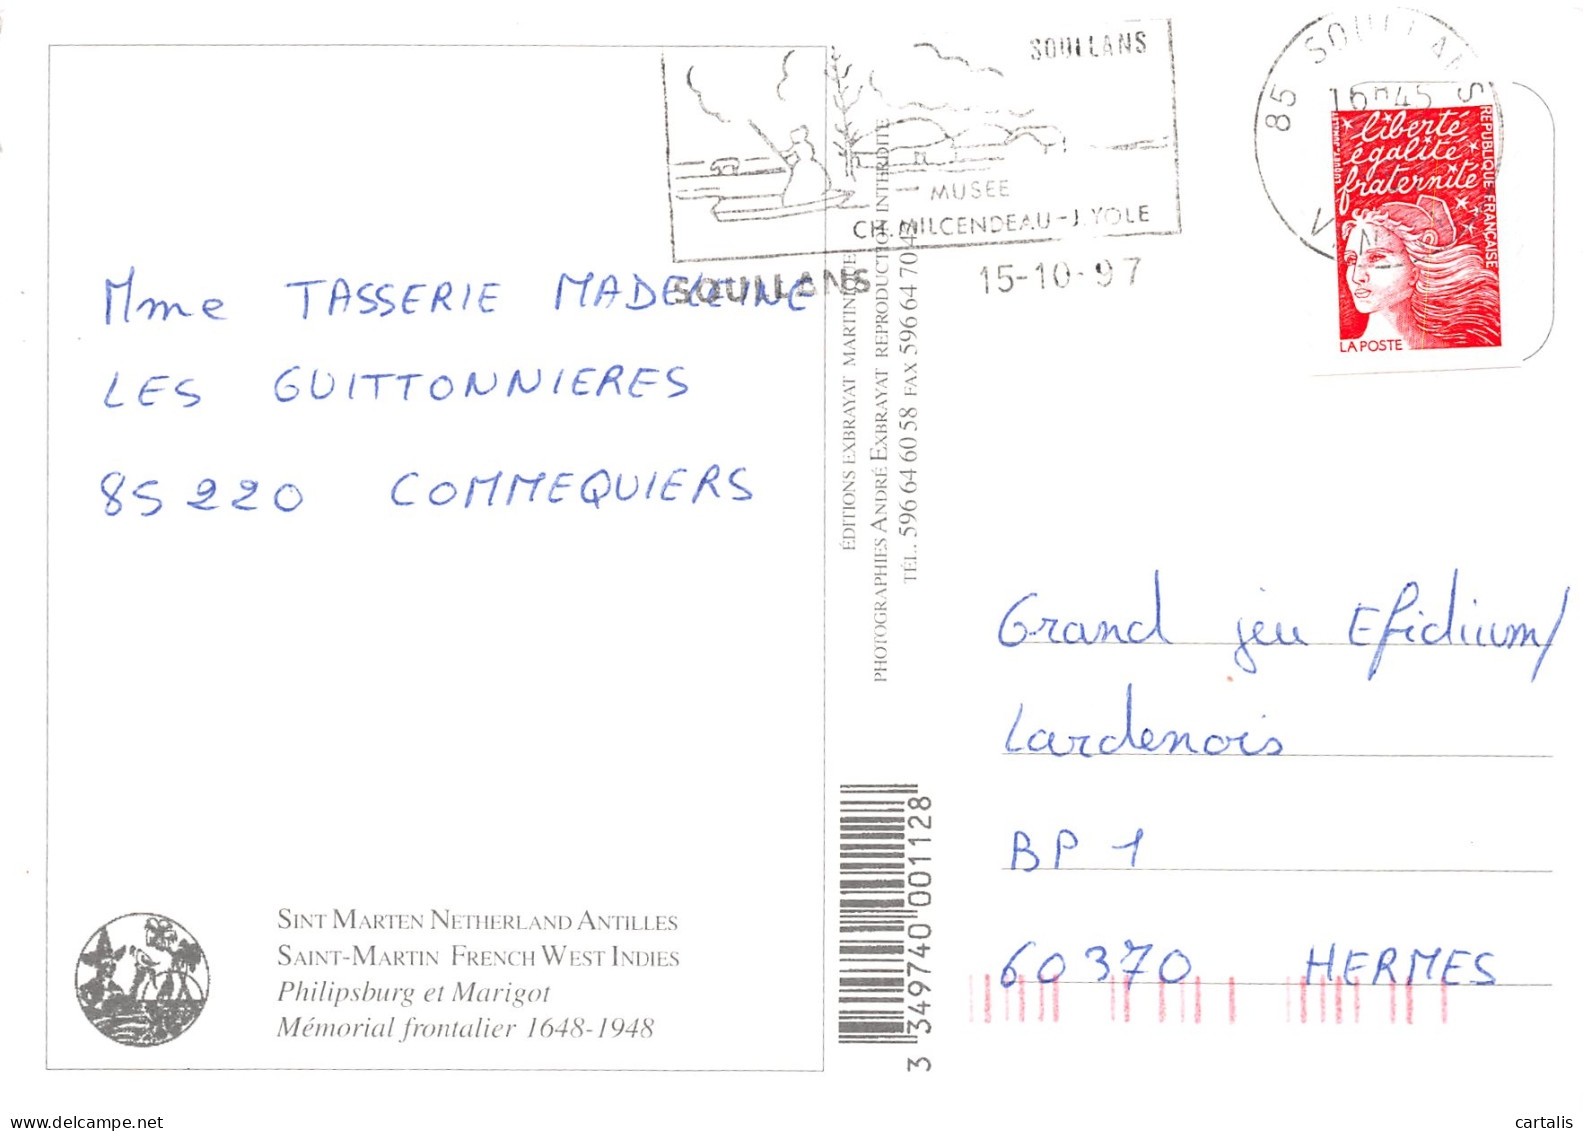 SOULLANS
MUSEE
CH. MILCENDEAU - J. YOLE
SOULLANS
15-10-97
85 SOULLANS
16H45
liberté
égalité
fraternité
REPUBLIQUE FRANÇAISE
LA POSTE
Mme TASSERIE MADELEINE
LES GUITTONNIERES
85220 COMMEQUIERS
ÉDITIONS EXBRAYAT MARTINIQUE
PHOTOGRAPHIES ANDRÉ EXBRAYAT REPRODUCTION INTERDITE
TÉL. 596 64 60 58 FAX 596 64 70 42
Grand jeu Efidium/
Lardenois
BP 1
60370 HERMES
SINT MARTEN NETHERLAND ANTILLES
SAINT-MARTIN FRENCH WEST INDIES
Philipsburg et Marigot
Mémorial frontalier 1648-1948
3 349740 001128
www.delcampe.net
cartalis